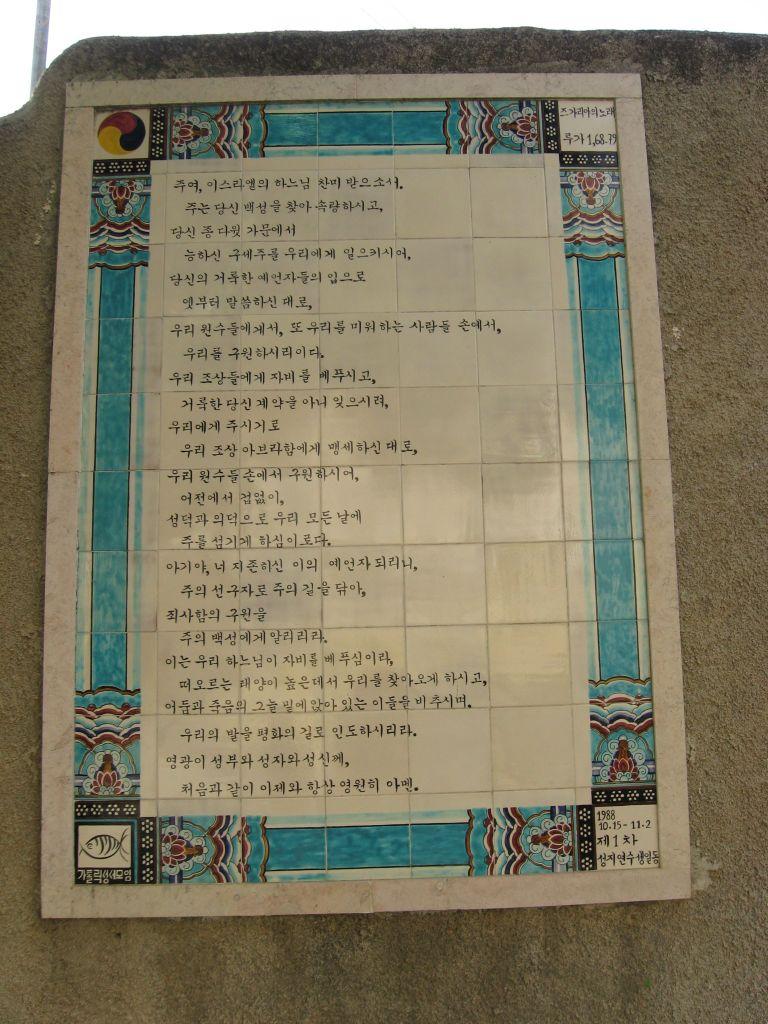 즈가리아의 노래
루가 1,68.79
주여, 이스라엘의 하느님 찬미 받으소서.
주는 당신 백성을 찾아 속량하시고,
당신 종 다윗 가문에서
능하신 구세주를 우리에게 일으키시어,
당신의 거룩한 예언자들의 입으로
옛부터 말씀하신 대로,
우리 원수들에게서, 또 우리를 미워하는 사람들 손에서,
우리를 구원하시리이다.
우리 조상들에게 자비를 베푸시고,
거룩한 당신 계약을 아니 잊으시려,
우리에게 주시기로
우리 조상 아브라함에게 맹세하신 대로,
우리 원수들 손에서 구원하시어,
어전에서 겁없이,
성덕과 의덕으로 우리 모든 날에
주를 섬기게 하심이로다.
아기야, 너 지존하신 이의 예언자 되리니,
주의 선구자로 주의 길을 닦아,
죄사함의 구원을
주의 백성에게 알리리라.
이는 우리 하느님이 자비를 베푸심이라,
떠오르는 태양이 높은데서 우리를 찾아오게 하시고,
어둠과 죽음의 그늘 밑에 앉아 있는 이들을 비추시며,
우리의 발을 평화의 길로 인도하시리라.
영광이 성부와 성자와 성신께,
처음과 같이 이제와 항상 영원히 아멘.
가톨릭성서모임
1988
10.15-11.2
제1차
성지연수생일동